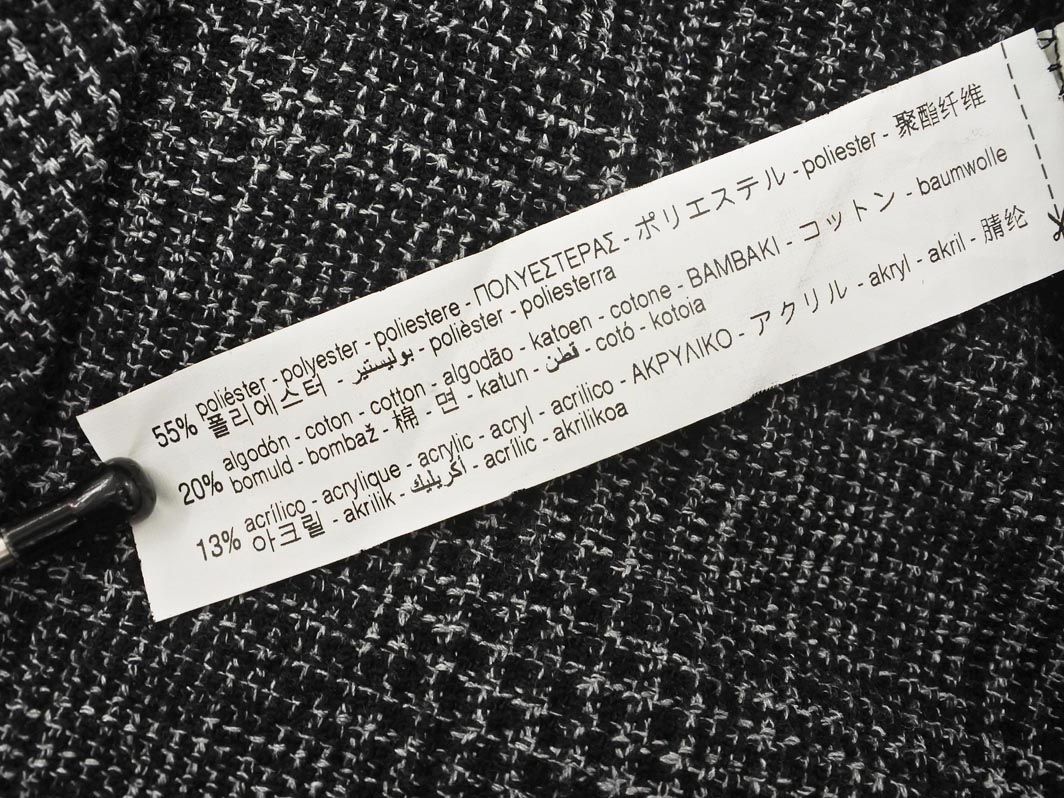 55% poliéster - polyester - poliestere - ΠΟΛΥΕΣΤΕΡΑΣ - ポリエステル - poliester - 聚酯纤维
폴리에스터 - بوليستير - polièster - poliesterra
20% algodón - coton - cotton - algodão - katoen - cotone - BAMBAKI - コットン - baumwolle
bomuld - bombaž - 棉 - 면 - katun - قطن - cotó - kotoia
13% acrílico - acrylique - acrylic - acryl - acrilico - ΑΚΡΥΛΙΚΟ - アクリル - akryl - akril - 腈纶
아크릴 - akrilik - اكريليك - acrílic - akrilikoa